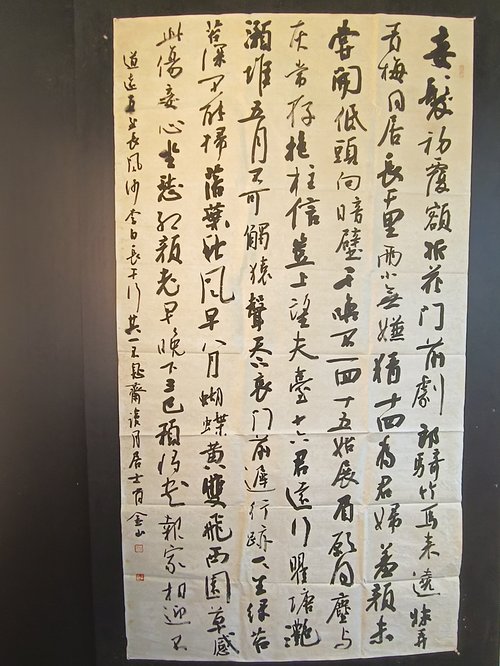 妾髮初覆額折花門前劇郎騎竹馬來遶牀弄
青梅同居長干里兩小無嫌猜十四為君婦羞顏未
嘗開低頭向暗壁千喚不一回十五始展眉願同塵與
灰常存抱柱信豈上望夫臺十六君遠行瞿塘灩
澦堆五月不可觸猿聲天上哀門前遲行跡一一生綠苔
苔深不能掃落葉秋風早八月蝴蝶黃雙飛西園草感
此傷妾心坐愁紅顏老早晚下三巴預將書報家相迎不
道遠直至長風沙李白長干行其一齋月居士金山